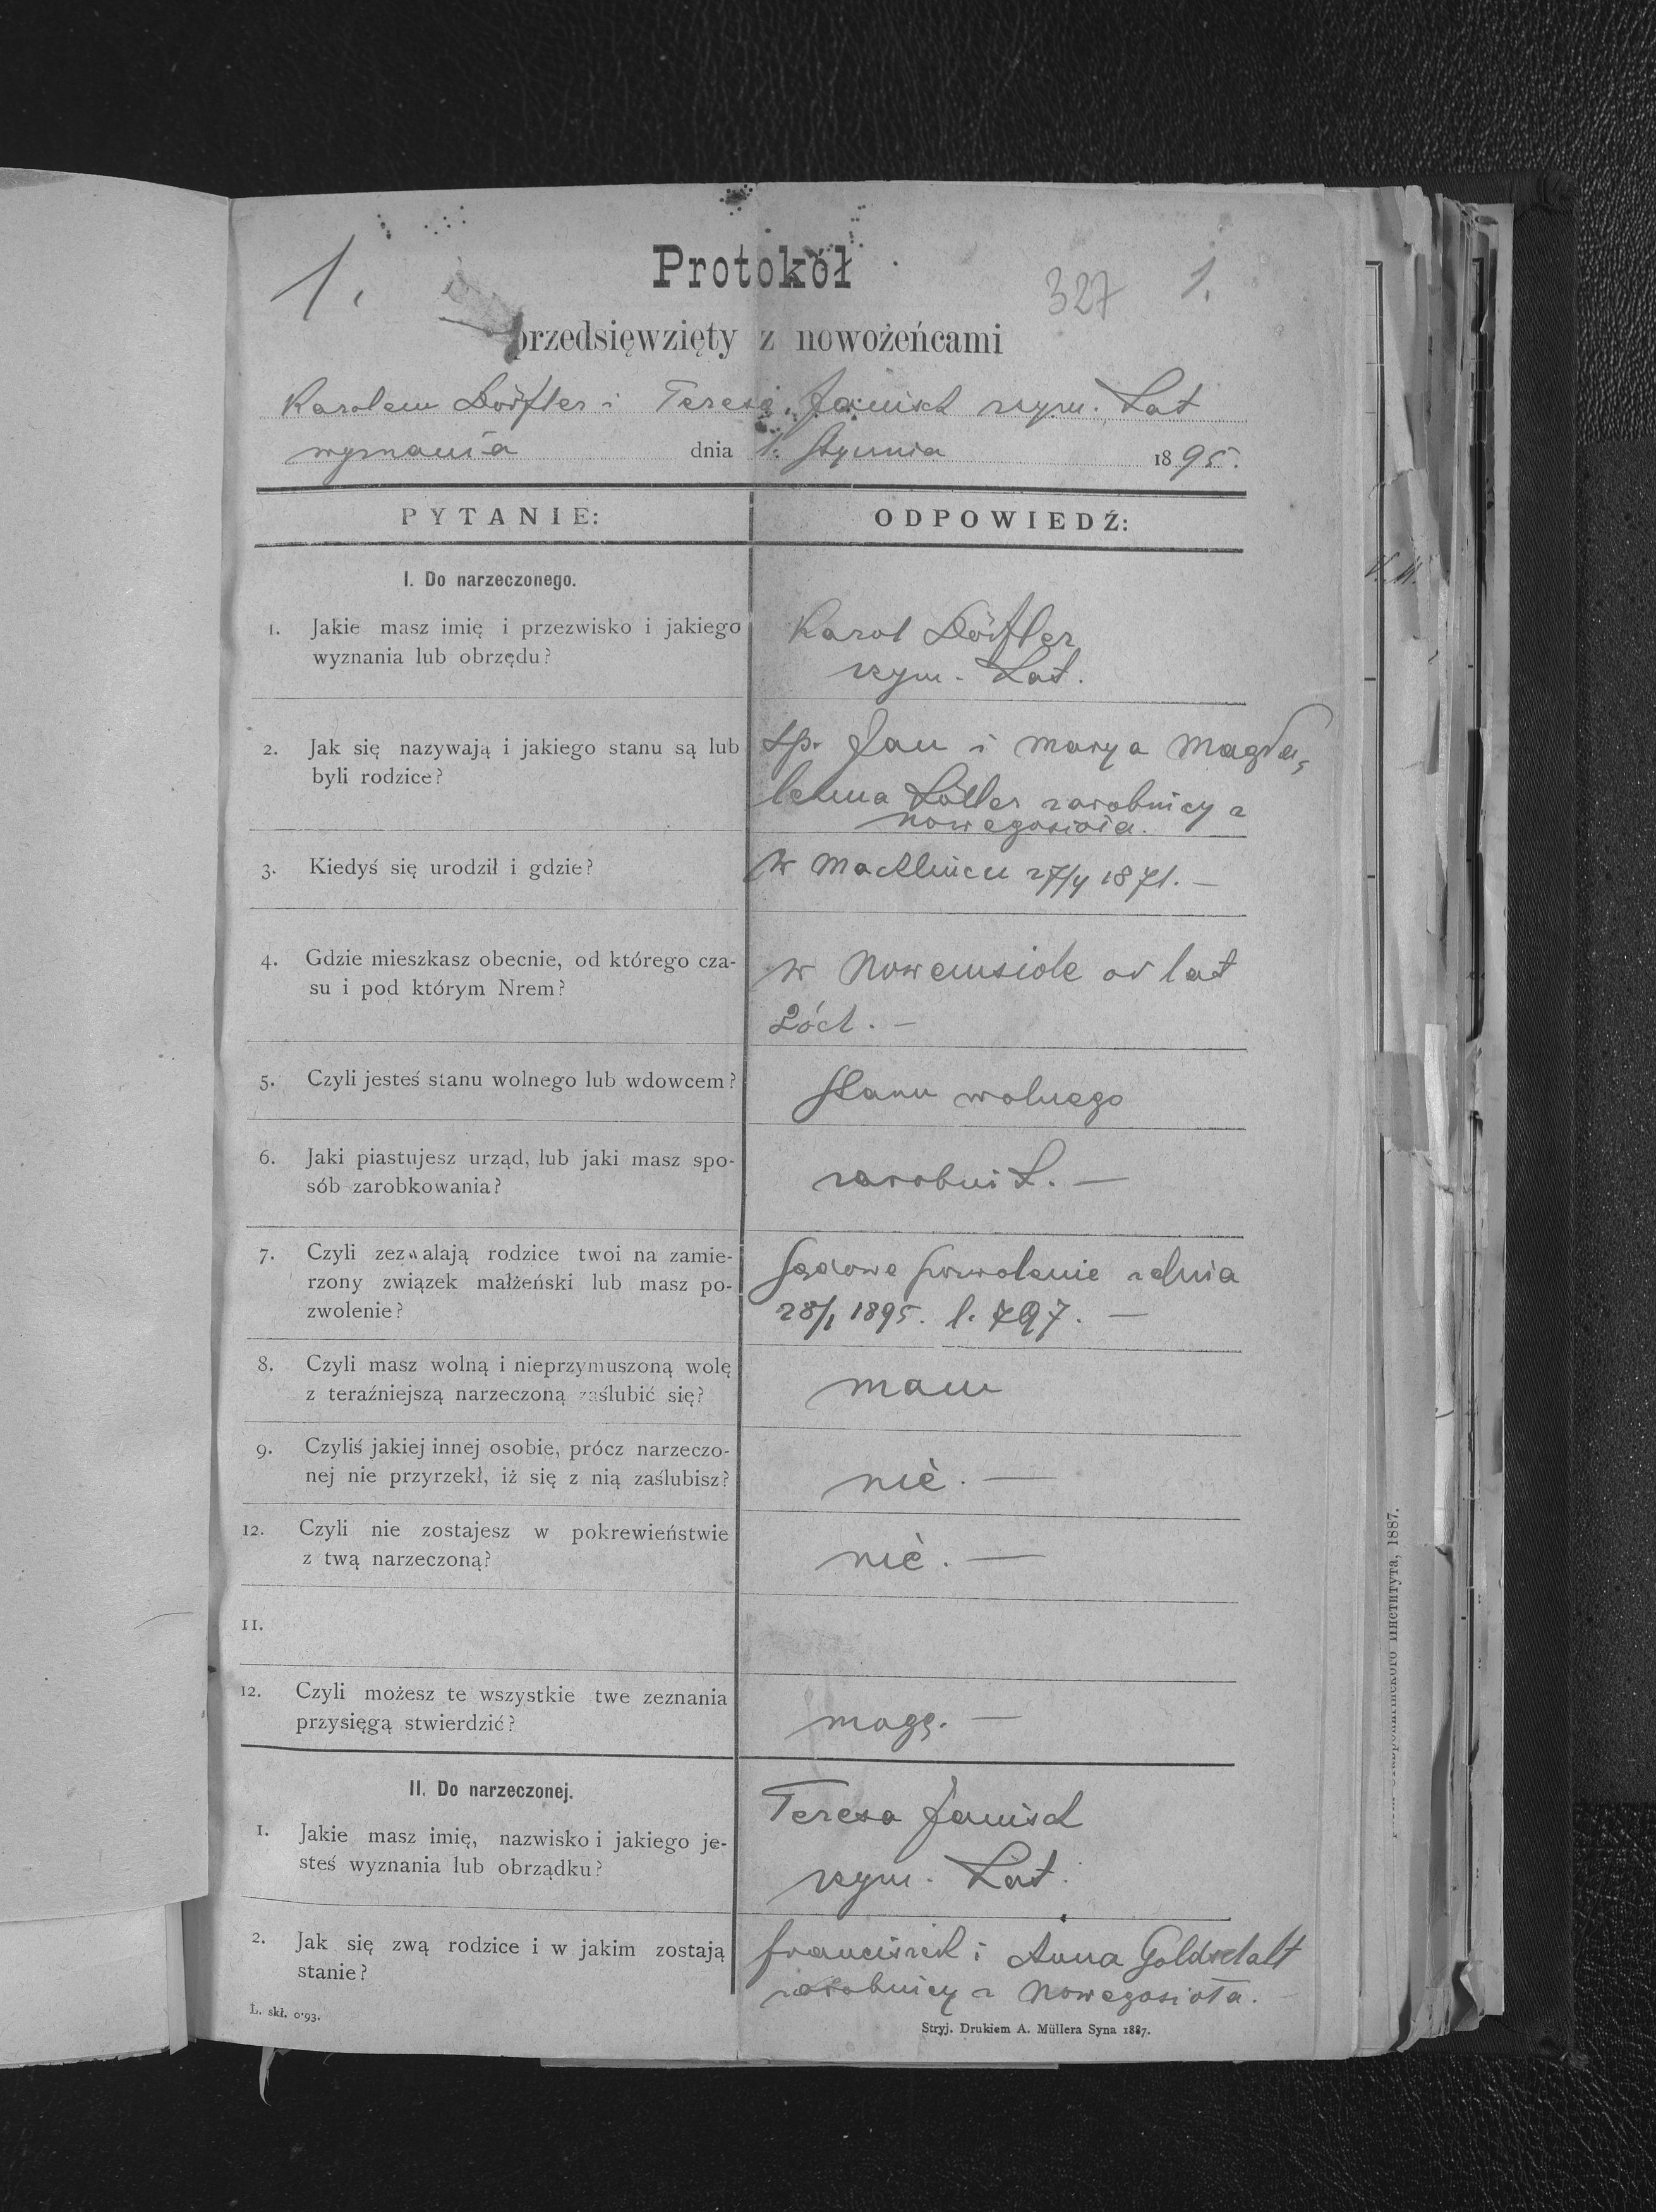 1. Protokół 327 1.
przedsięwzięty z nowożeńcami
Karolem Dörfler i Teresą Janisch rzym. kat
wyznania dnia 1. Stycznia 1895.
PYTANIE: ODPOWIEDŹ:
I. Do narzeczonego.
1. Jakie masz imię i przezwisko i jakiego
wyznania lub obrzędu?
Karol Dörfler
rzym. kat.
2. Jak się nazywają i jakiego stanu są lub
byli rodzice?
śp. Jan i Marya Magda,
lena zarobnicy z
Nowegosioła.
3. Kiedyś się urodził i gdzie?
w Machlińcu 27/4 1871. —
4. Gdzie mieszkasz obecnie, od którego cza-
su i pod którym Nrem?
w Nowemsiole od lat
2óch. —
5. Czyli jesteś stanu wolnego lub wdowcem?
stanu wolnego
6. Jaki piastujesz urząd, lub jaki masz spo-
sób zarobkowania?
zarobnik. —
7. Czyli zezwalają rodzice twoi na zamie-
rzony związek małżeński lub masz po-
zwolenie?
Sądowe pozwolenie z dnia
28/1 1895. l. 797. —
8. Czyli masz wolną i nieprzymuszoną wolę
z teraźniejszą narzeczoną zaślubić się?
mam
9. Czyliś jakiej innej osobie, prócz narzeczo-
nej nie przyrzekł, iż się z nią zaślubisz?
nie. —
12. Czyli nie zostajesz w pokrewieństwie
z twą narzeczoną?
nie. —
11.
12. Czyli możesz te wszystkie twe zeznania
przysięgą stwierdzić?
mogę. —
II. Do narzeczonej.
1. Jakie masz imię, nazwisko i jakiego je-
steś wyznania lub obrządku?
Teresa Janisch
rzym. kat.
2. Jak się zwą rodzice i w jakim zostają
stanie?
Franciszek i Anna Goldschalt
zarobnicy z Nowegosioła.
L. skł. 0·93.
Stryj. Drukiem A. Müllera Syna 1887.
института, 1887.